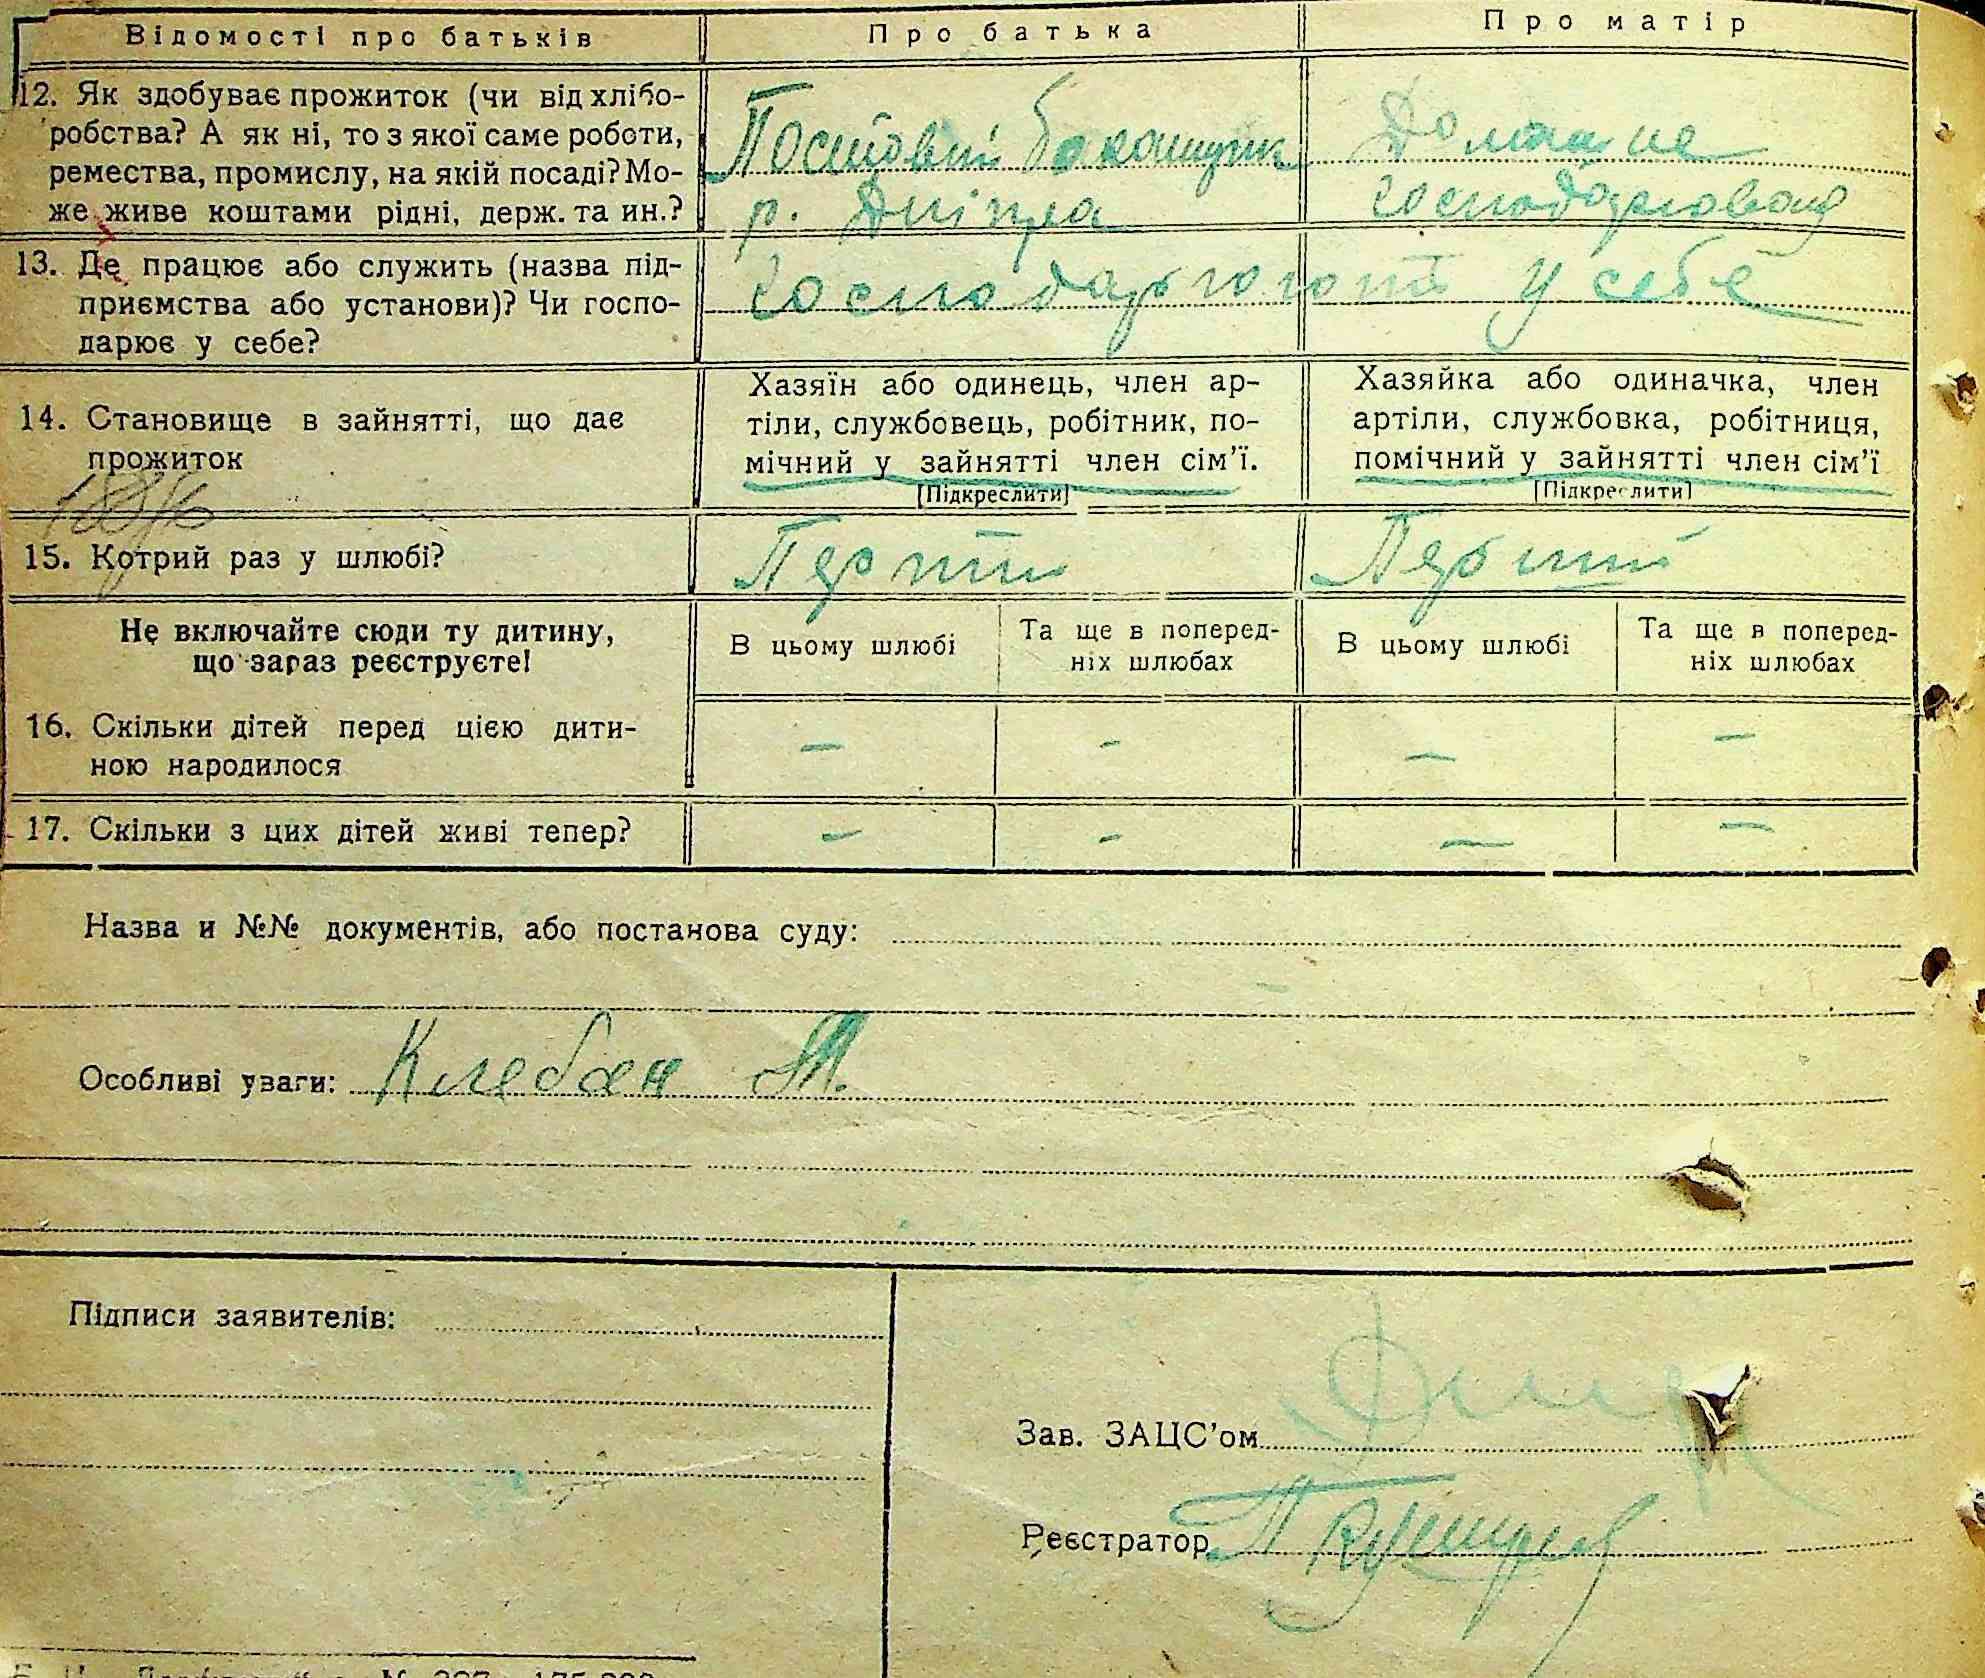 Відомості про батьків
Про батька
Про матір
12. Як здобуває прожиток (чи від хлібо-
робства? А як ні, то з якої саме роботи,
ремества, промислу, на якій посаді? Мо-
же живе коштами рідні, держ. та ин.?
Постовий
р. Дніпра
Домашнє
господарювання
13. Де працює або служить (назва під-
приємства або установи)? Чи госпо-
дарює у себе?
у себе
14. Становище в зайнятті, що дає
прожиток
Хазяїн або одинець, член ар-
тіли, службовець, робітник, по-
мічний у зайнятті член сім’ї.
[Підкреслити]
Хазяйка або одиначка, член
артіли, службовка, робітниця,
помічний у зайнятті член сім’ї
[Підкреслити]
15. Котрий раз у шлюбі?
Перший
Перший
Не включайте сюди ту дитину,
що зараз реєструєте!
В цьому шлюбі
Та ще в поперед-
ніх шлюбах
В цьому шлюбі
Та ще в поперед-
ніх шлюбах
16. Скільки дітей перед цією дити-
ною народилося
— - — —
17. Скільки з цих дітей живі тепер?
— - — —
Назва и №№ документів, або постанова суду:
Особливі уваги: Клебан М.
Підписи заявителів:
Зав. ЗАЦС’ом
Реєстратор